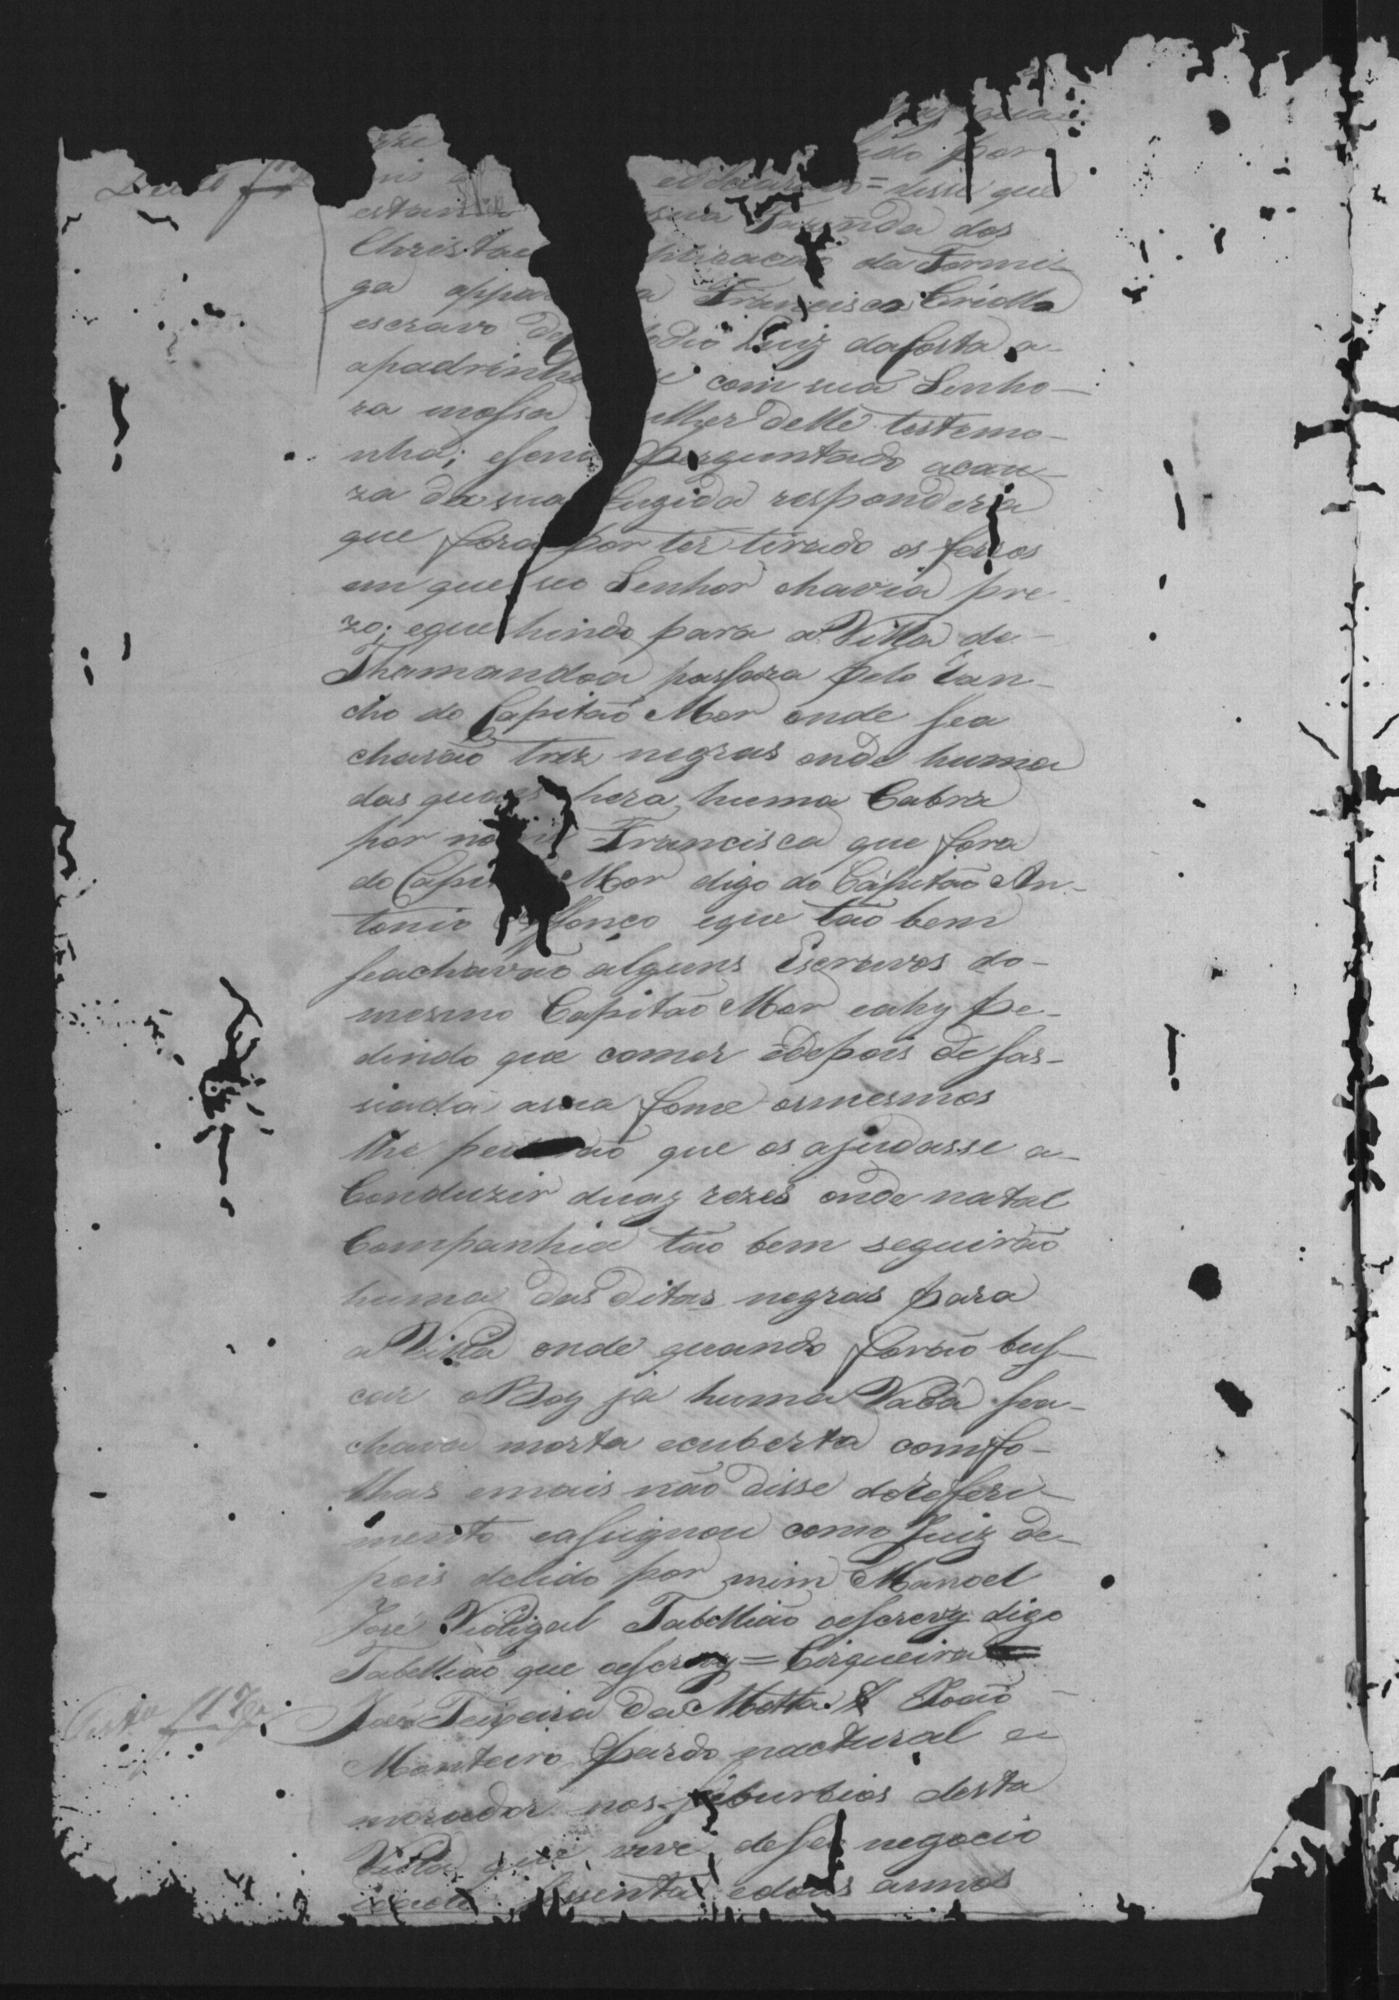 que
ido por
mis declarado = disse que
estan sua Fazenda dos
Christae plicacão da Formi-
ga appa a Francisco Criollo
escravo de edio Luiz dacosta a-
apadrinha se com sua Senho-
ra mossa mulher delle testemo-
nha; esend perguntado acau-
za da sua fugida responderia
que fora por ter tirado os ferros
em que seo Senhor ohavia pre-
zo; eque hindo para a Villa de
Thamandoa passara pelo Ran-
cho do Capitão Mor onde sea
charão trez negras onde huma
das quaes hera huma Cabra
por nome Francisca que fora
do Capitão Mor digo do Capitão An-
tonio Affonço eque tão bem
seachavão alguns Escravos do-
mesmo Capitão Mor eahy pe-
dindo que comer edepois de sas-
siada asua fome osmesmos
lhe pedirão que os ajudasse a-
Conduzir duaz rezes onde natal
Companhia tão bem seguirão
huma das ditas negras para
a Villa onde quando forão bus-
car oBoy já huma Vaca sea-
chava morta ecuberta comfo-
lhas emais não disse doreferi-
mento eassignou como Juiz de-
pois delido por mim Manoel
José Vidigal Tabellião oescrevy digo
Tabellião que oescrevy = Cirqueira =
José Teixeira da Motta. João
Monteiro pardo nactural e
morador nos suburbios desta
Villa que vive deseu negocio
idade secenta edous annos